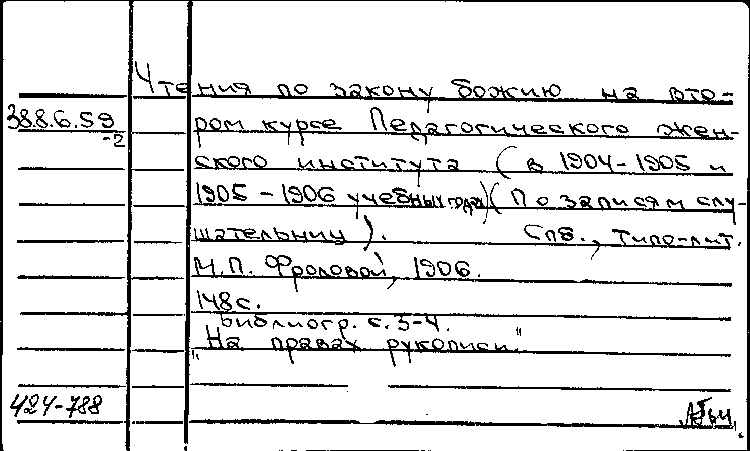 Чтения по закону божию на вто-
388.6.59
-2
ром курсе Педагогического жен-
ского института (в 1904-1905 и
1905-1906 учебных годах) (По записям слу-
шательниц). Спб., типо-лит.
М.П. Фроловой, 1906.
148с.
Библиогр. с. 3-4.
"На правах рукописи."
424-788